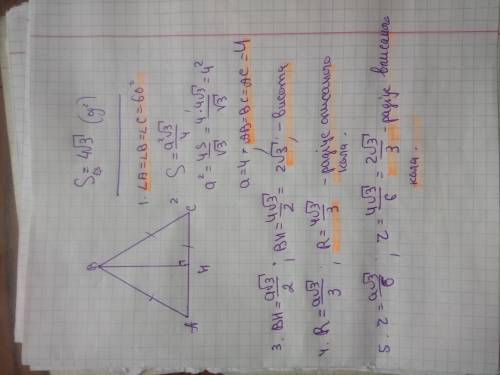 S△ = 4√3 (од²)
B
A
H
C
1. ∠A=∠B=∠C=60°
2. S = a²√3/4
a² = 4S/√3 = 4·4√3/√3 = 4²
a=4, AB=BC=AC=4
3. BH = a√3/2; BH = 4√3/2 = 2√3 - висота
4. R = a√3/3, R = 4√3/3 - радіус описаного кола.
5. r = a√3/6; r = 4√3/6 = 2√3/3 - радіус вписаного кола.